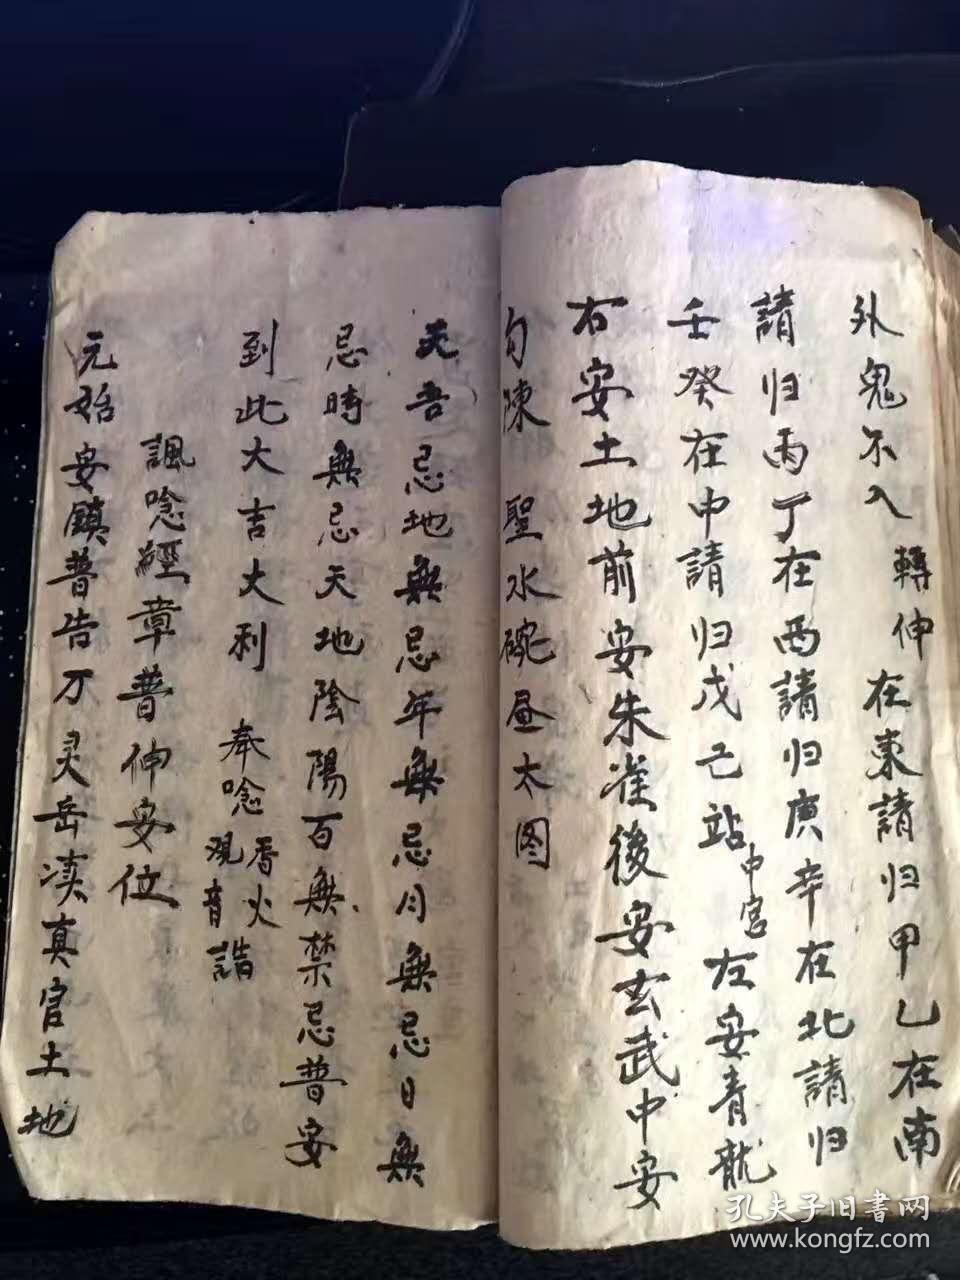 外鬼不入 轉伸 在東請归甲乙在南
請归丙丁在西請归庚辛在北請归
壬癸在中請归戊己站中宮 左安青龍
右安土地前安朱雀後安玄武中安
勾陳 聖水碗昼太图
天吾忌地無忌年無忌月無忌日無
忌時無忌天地陰陽百無禁忌普安
到此大吉大利 奉唸香火观音誥
諷唸經章普伸安位
元始安鎮普告万灵岳渎真官土地
孔夫子旧書网
www.kongfz.com